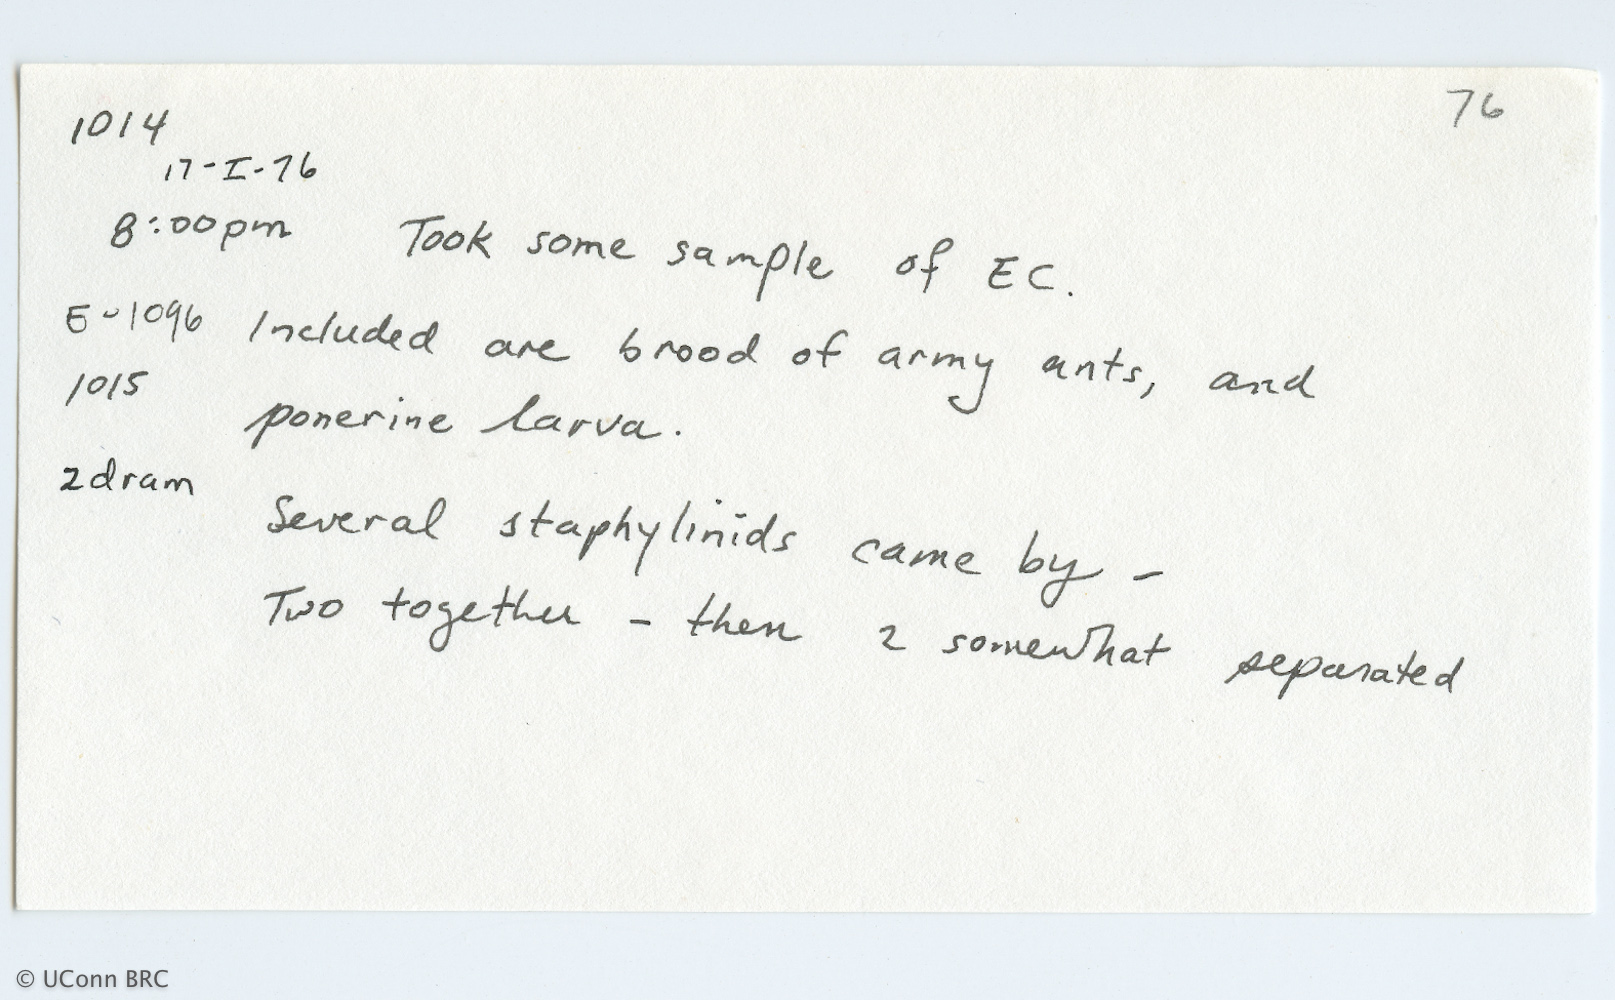 1014
76
17-I-76
8:00pm Took some sample of EC.
E-1096 Included are brood of army ants, and
1015 ponerine larva.
2dram
Several staphylinids came by -
Two together - then 2 somewhat separated
© UConn BRC